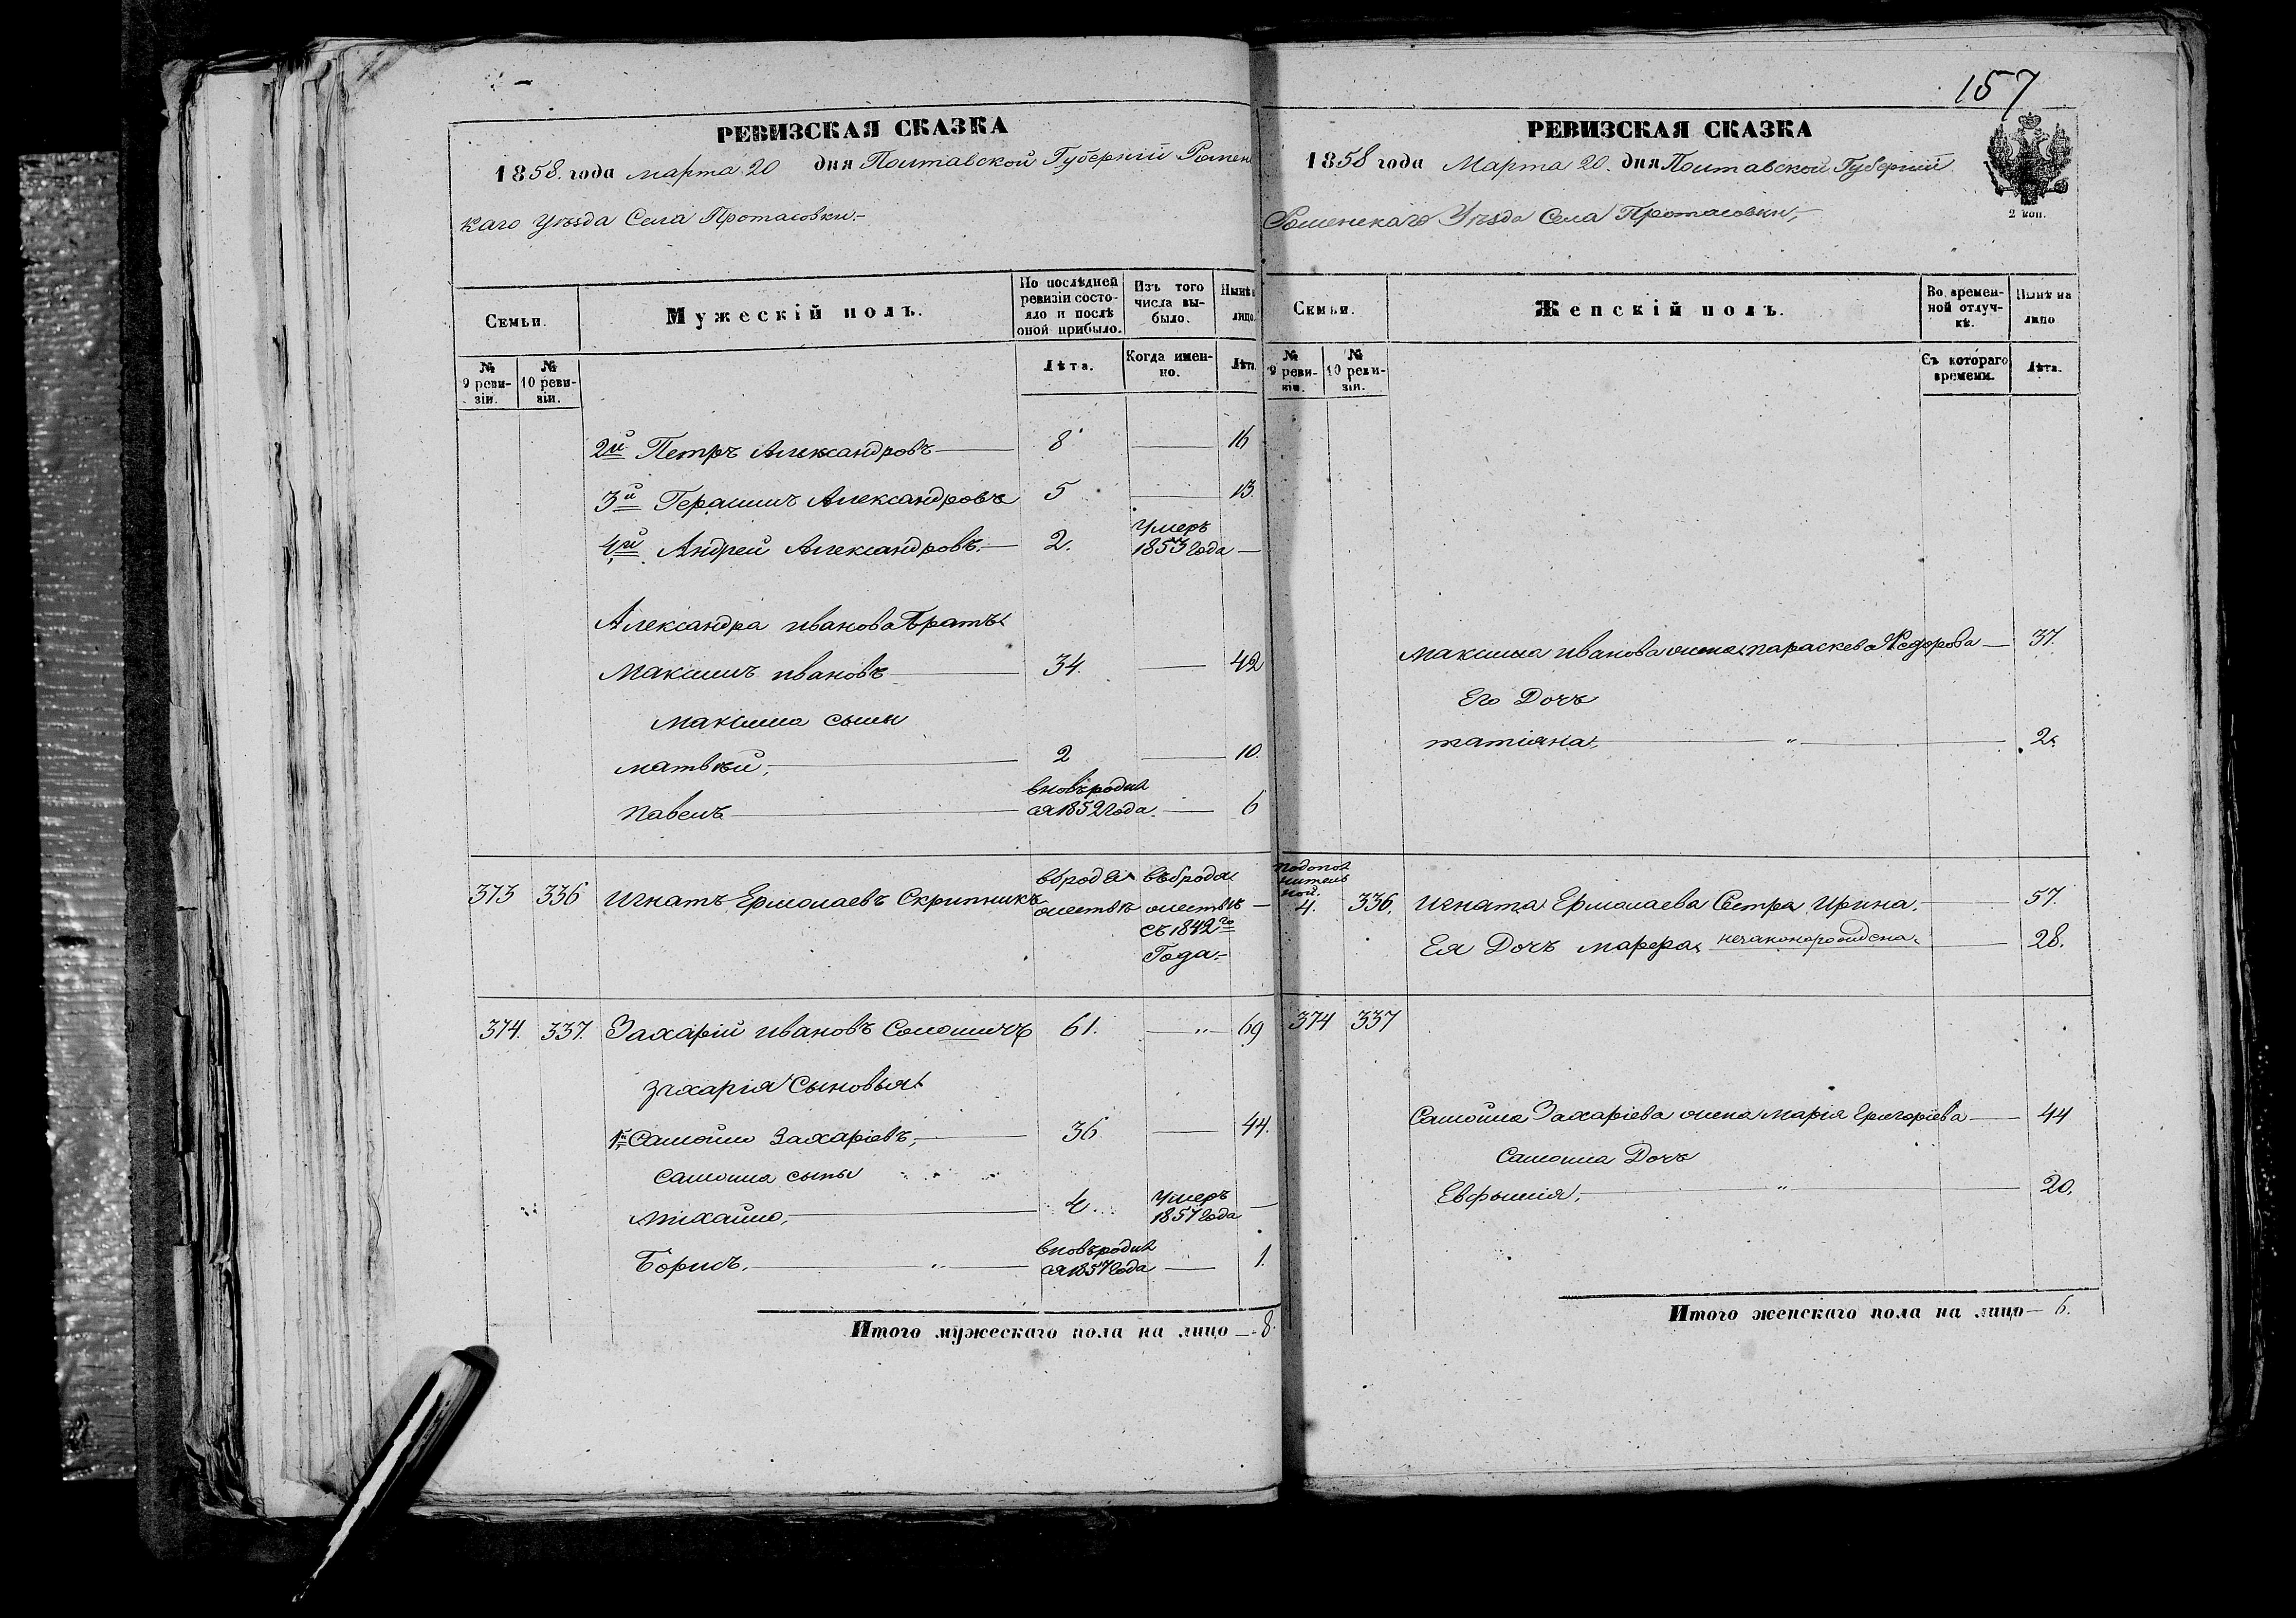 РЕВИЗСКАЯ СКАЗКА
1858. года марта 20 дня Полтавской Губерніи Ромен
каго Уѣзда Села Протасовки.
Семьи.
Мужескій полъ.
По послѣдней ревизіи состояло и послѣ оной прибыло.
Изъ того числа выбыло.
Нынѣ
лицо.
№ 9 ревизіи.
№ 10 ревизіи.
Лѣта.
Когда именно.
Лѣта.
2й Петръ Александровъ 8 16
3й Герасимъ Александровъ 5 13.
4й Андрей Александровъ. 2. Умеръ 1853 года
Александра Иванова Братъ
Максимъ Ивановъ 34. 42
Максима сыны
Матвѣй, 2 10.
Павелъ вновь родил
ся 1852 года. 6
373 336 Игнатъ Ермолаевъ Скрипникъ в брод въ брода
жествѣ жествѣ
съ 1842го
Года.
374. 337. Захарій Ивановъ 61. 69
Захарія Сыновья
1й Самойло Захаріевъ, 36 44.
Самойла сыны
Михайло, 4. Умеръ 1857 года
Борисъ. вновь родил
ся 1857 года 1.
Итого мужескаго пола на лицо — 8.
157
РЕВИЗСКАЯ СКАЗКА
1858 года Марта 20. дня Полтавской Губерніи
Роменскаго Уѣзда Села Протасовки,
2 коп.
Семьи.
Женскій полъ.
Во временной отлучкѣ.
Нынѣ на лицо
№ 9 ревизіи.
№ 10 ревизіи.
Съ котораго времени.
Лѣта.
Максима Иванова жена Параскева Федорова 37.
Его Дочь
Татіяна, 2.
По дополнительной.
4. 336. Игната Ермолаева Сестра Ирина. 57.
Ея Дочь Марфа, незаконорожденна. 28.
374 337
Самойла Захаріева жена Марія Григоріева 44
Самойла Дочь
Евфимія, 20.
Итого женскаго пола на лицо — 6.